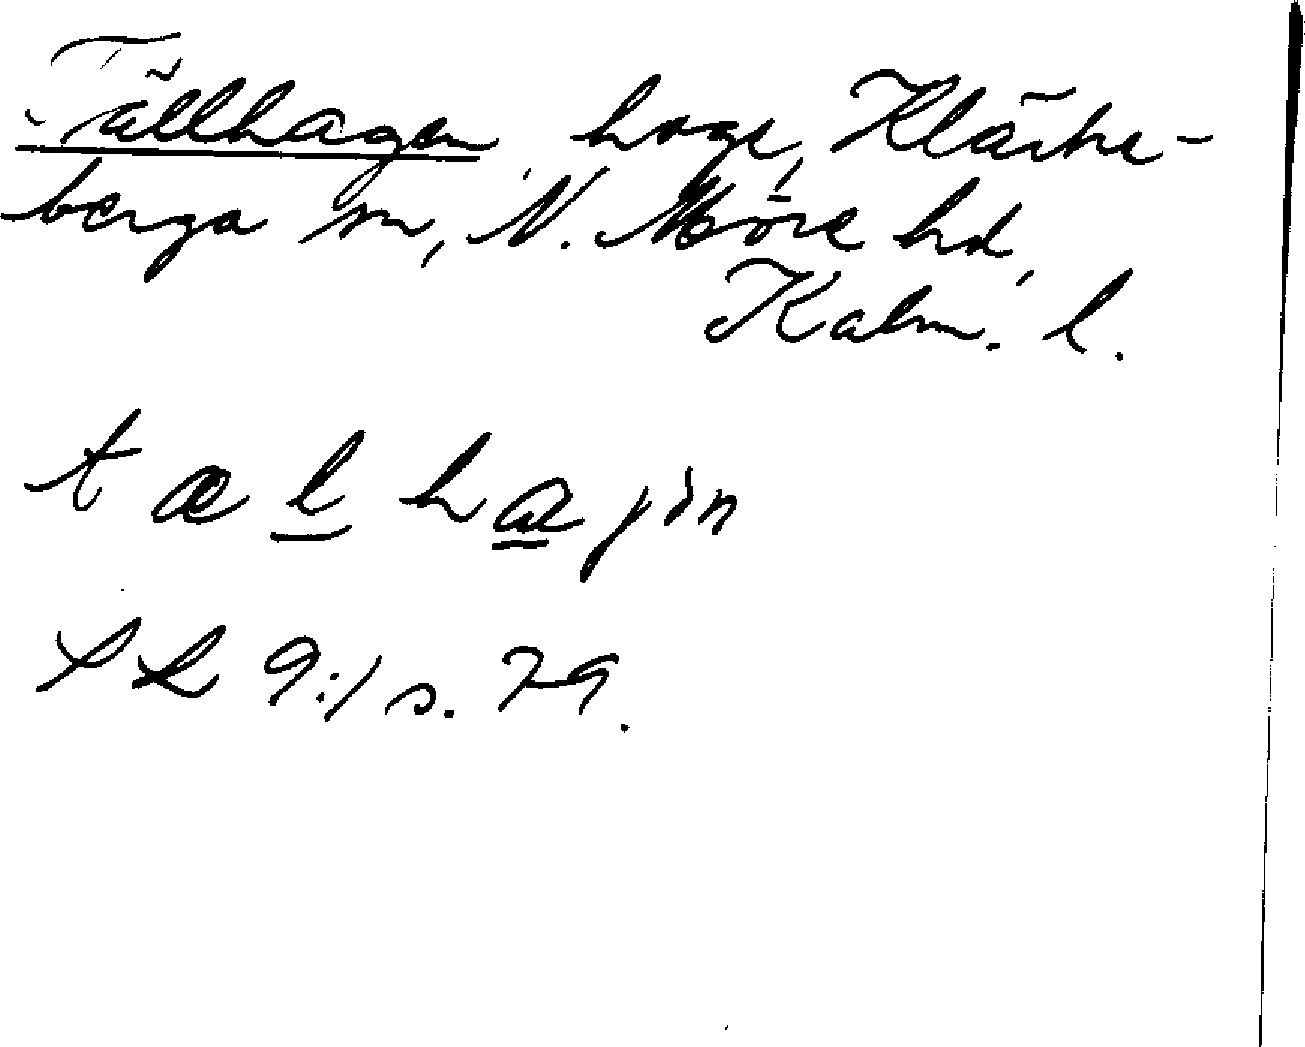 Tällhagen, hage, Kläcke-
berga sn, N. Möre hd,
Kalm. l.
t æ l h a g i n
SL 9:1 s. 79.